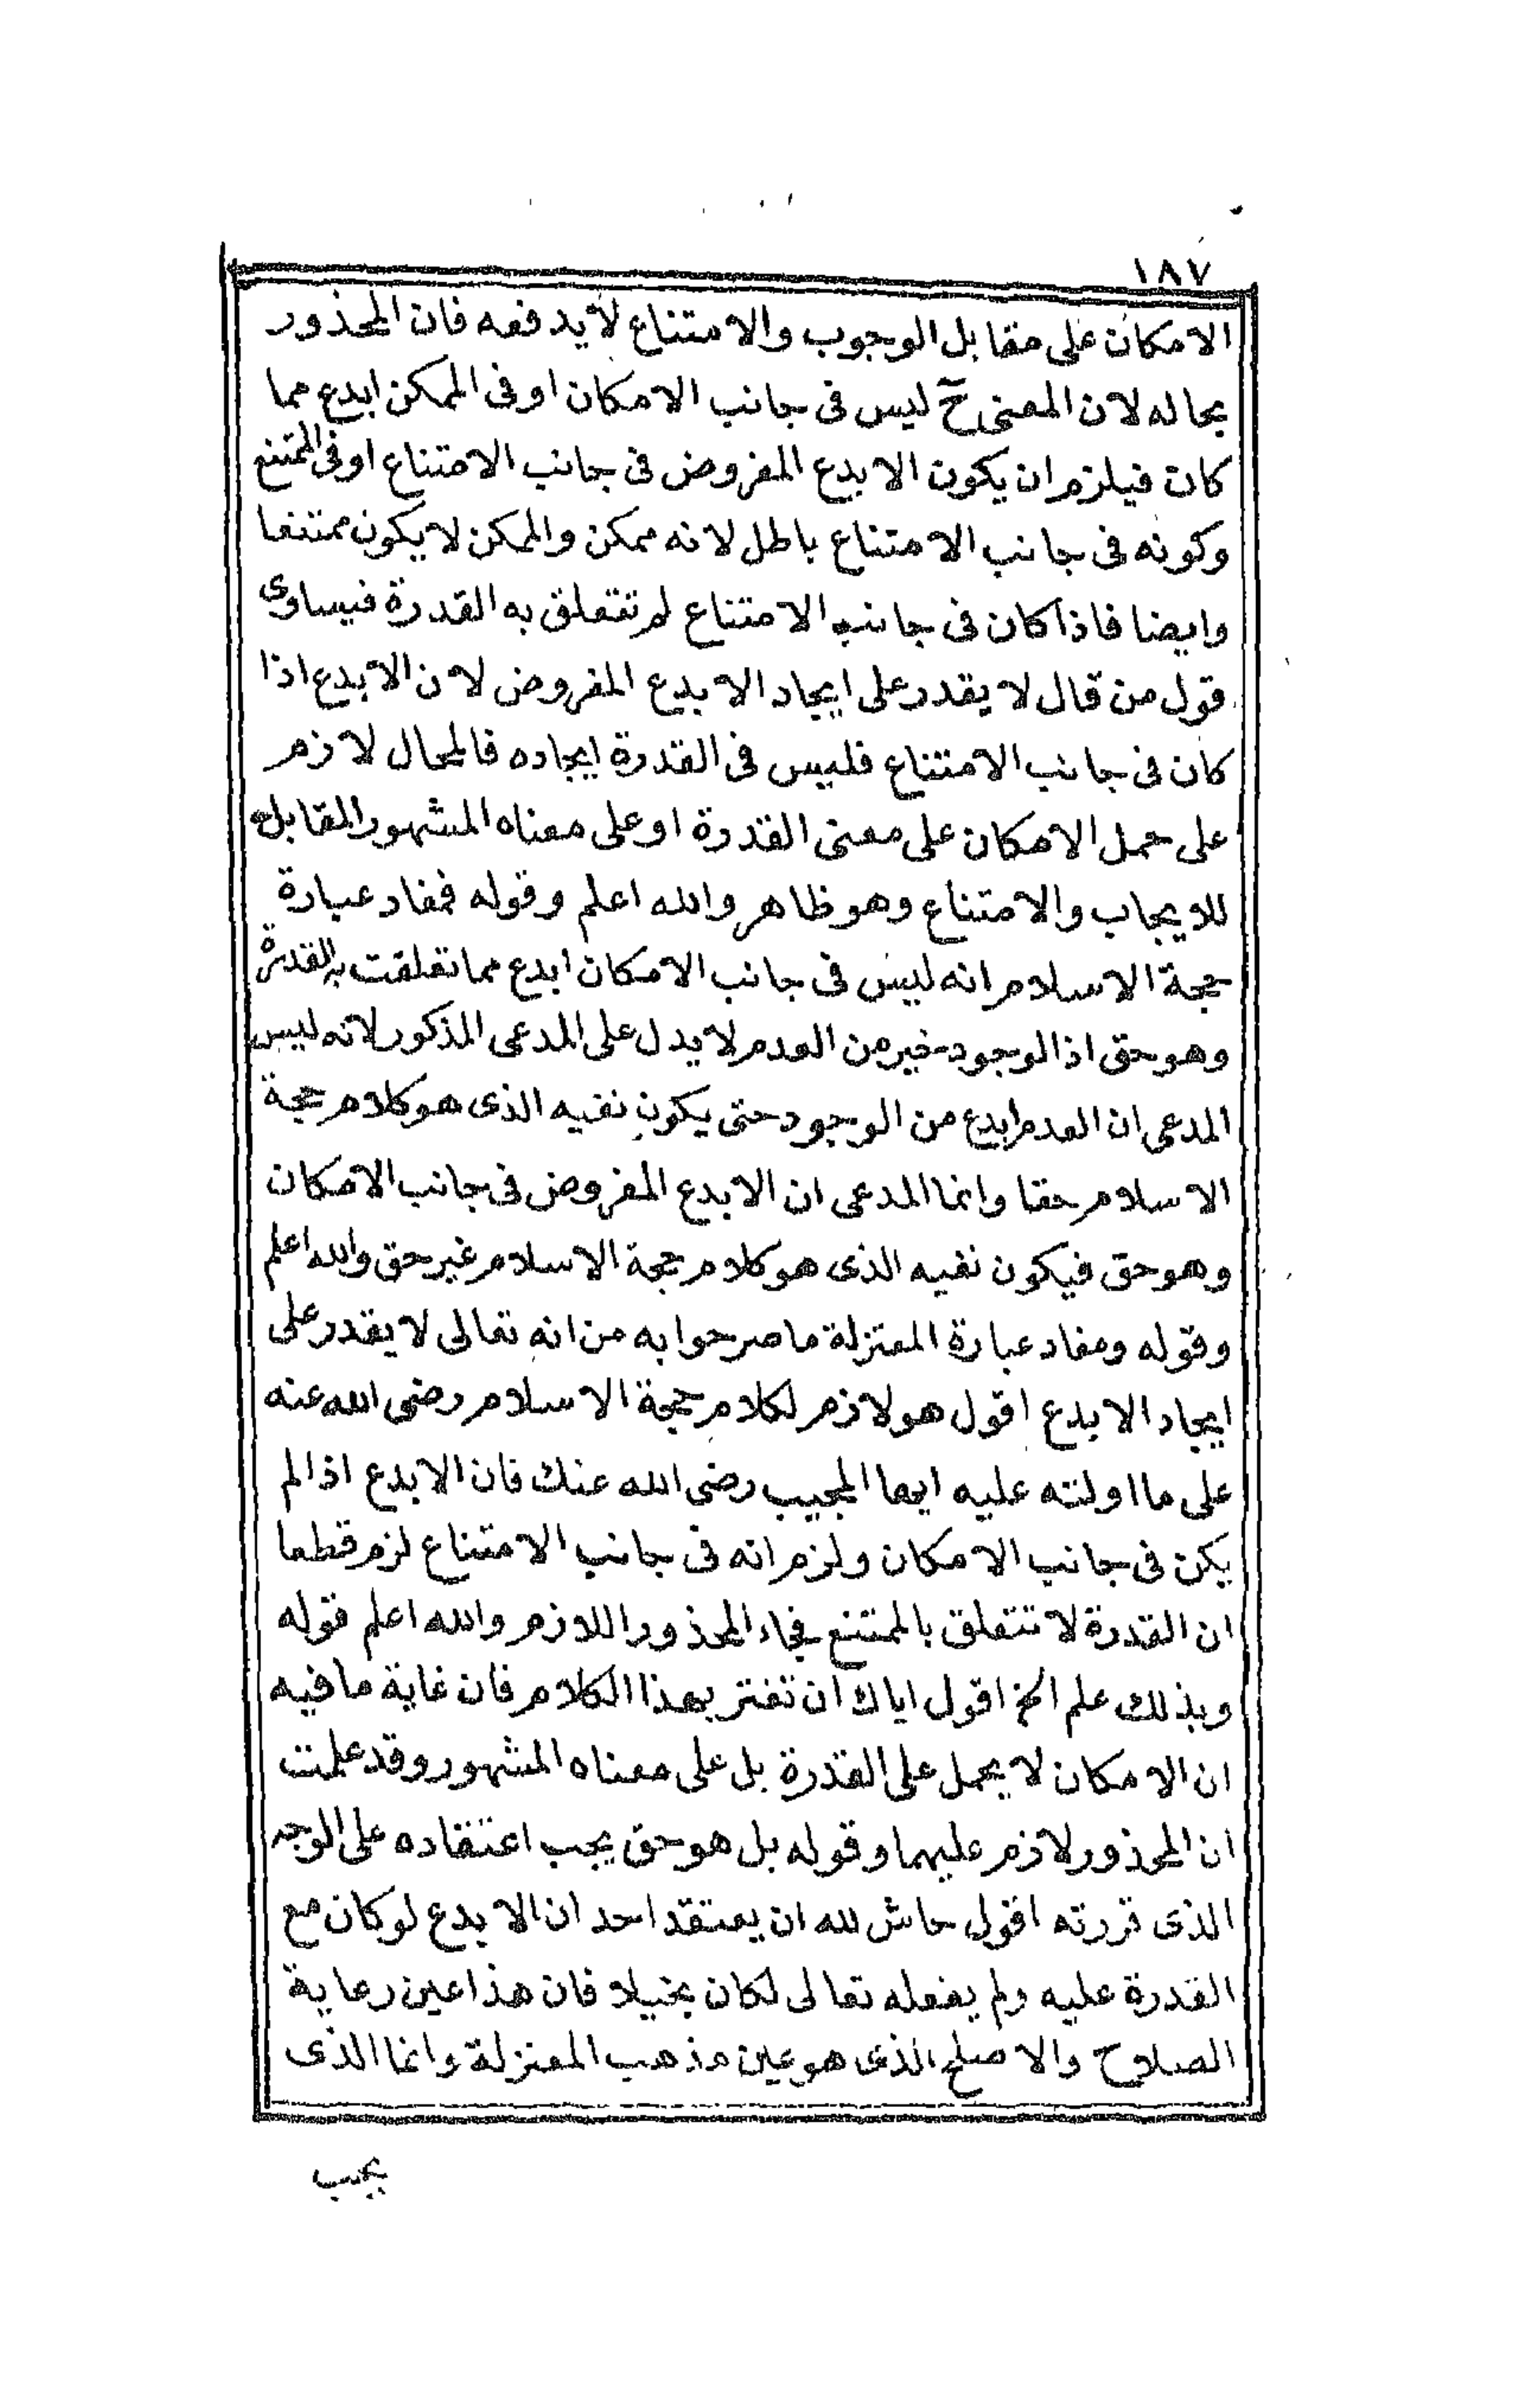 ١٨٧
الامكان على مقابل الوجوب والامتناع لا يدفعه فان المحذور
بحاله لان المعنى ح ليس فى جانب الامكان او فى الممكن ابدع مما
كان فيلزم ان يكون الابدع المفروض فى جانب الامتناع او فى الممتنع
وكونه فى جانب الامتناع باطل لانه ممكن والممكن لا يكون ممتنعا
وايضا فاذا كان فى جانب الامتناع لم تتعلق به القدرة فيساوى
قول من قال لا يقدر على ايجاد الابدع المفروض لان الابدع اذا
كان فى جانب الامتناع فليس فى القدرة ايجاده فالمحال لازم
على حمل الامكان على معنى القدرة او على معناه المشهور المقابل
للايجاب والامتناع وهو ظاهر والله اعلم وقوله فمفاد عبارة
حجة الاسلام انه ليس فى جانب الامكان ابدع مما تعلقت به القدرة
وهو حق اذ الوجود خير من العدم لا يدل على المدعى المذكور لانه ليس
المدعى ان العدم ابدع من الوجود حتى يكون نفيه الذى هو كلام حجة
الاسلام حقا وانما المدعى ان الابدع المفروض فى جانب الامكان
وهو حق فيكون نفيه الذى هو كلام حجة الاسلام غير حق والله اعلم
وقوله ومفاد عبارة المعتزلة ما صرحوا به من انه تعالى لا يقدر على
ايجاد الابدع اقول هو لازم لكلام حجة الاسلام رضى الله عنه
على ما اولته عليه ايها المجيب رضى الله عنك فان الابدع اذا لم
يكن فى جانب الامكان ولزم انه فى جانب الامتناع لزم قطعا
ان القدرة لا تتعلق بالممتنع فجاء المحذور اللازم والله اعلم قوله
وبذلك علم الخ اقول اياك ان تغتر بهذا الكلام فان غاية ما فيه
ان الامكان لا يحمل على القدرة بل على معناه المشهور وقد علمت
ان المحذور لازم عليهما وقوله بل هو حق يجب اعتقاده على الوجه
الذى قررته اقول حاش لله ان يعتقد احد ان الابدع لو كان مع
القدرة عليه ولم يفعله تعالى لكان بخيلا فان هذا عين رعاية
الصلاح والاصلح الذى هو عين مذهب المعتزلة وانما الذى
يجب